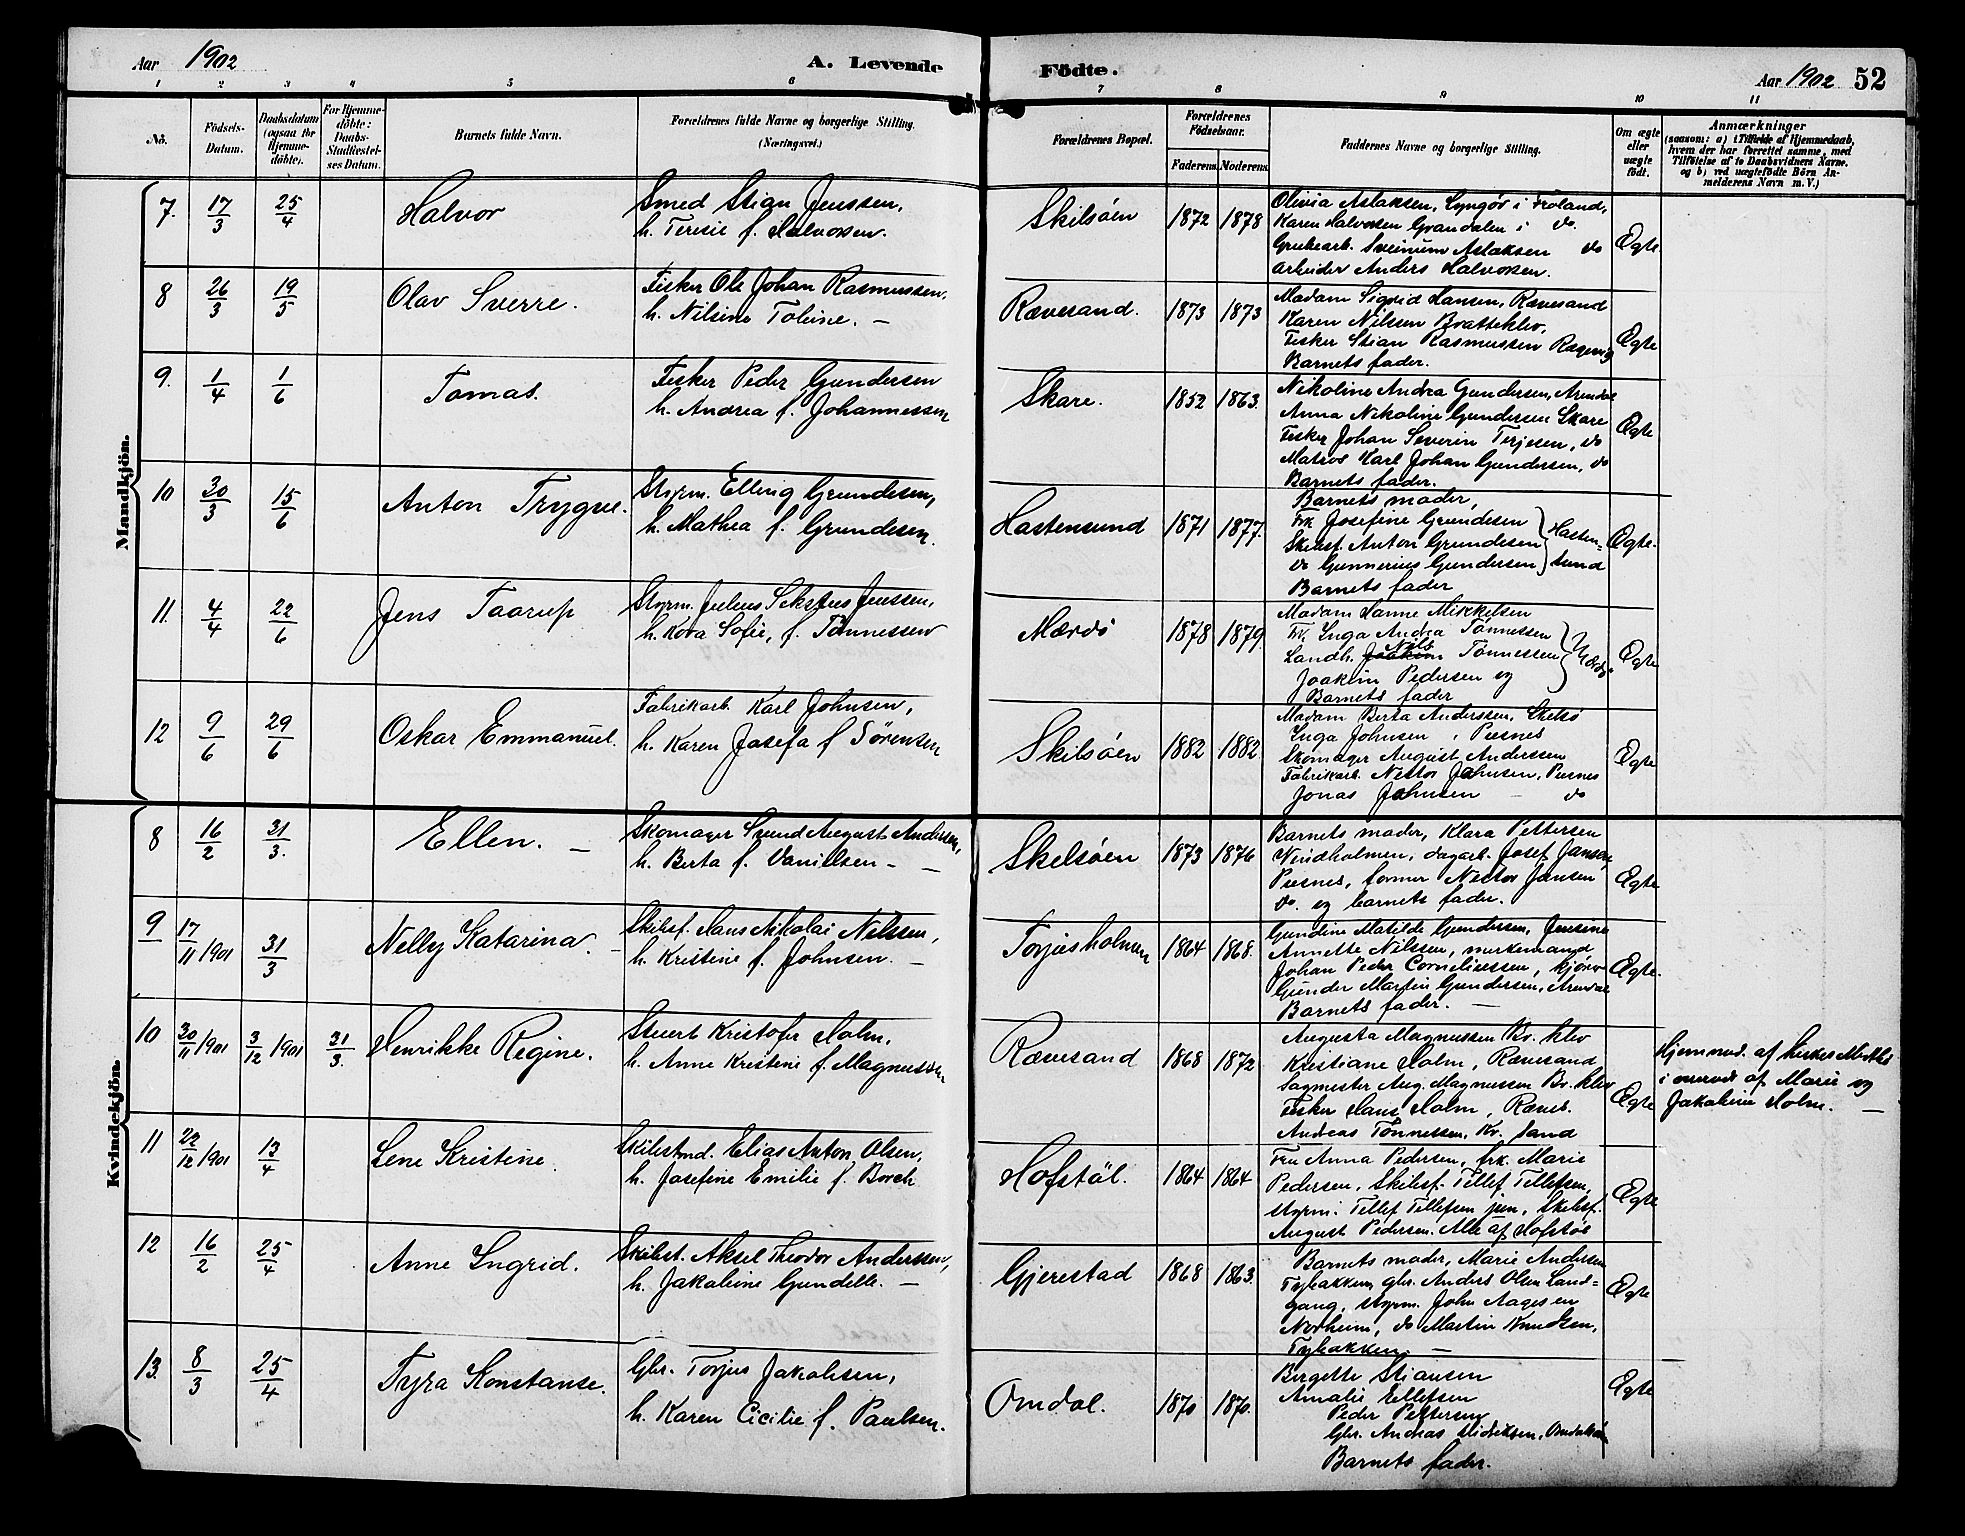 Aar 1902 A. Levende Födte. Aar 1902 52
1 2 3 4 5 6 7 8 9 10 11
No. Födsels-Datum. Daabsdatum (ogsaa for Hjemmedöbte). For Hjemmedöbte: Daabs-Stadfæstelses Datum. Barnets fulde Navn. Forældrenes fulde Navne og borgerlige Stilling. (Næringsvei.) Forældrenes Bopæl. Forældrenes Födselsaar. Faderens Moderens. Faddernes Navne og borgerlige Stilling. Om ægte eller uægte födt. Anmærkninger
(saasom: a) i Tilfælde af Hjemmedaab,
hvem der har forrettet samme, med
Tilföielse af to Daabsvidners Navne.
og b) ved uægtefödte Börn Anmelderens Navn m. V.)
Mandkjön.
7. 17/3 25/4 Halvor
Smed Stian Jenssen,
h. Teresie f. Halvorsen.
Skilsöen 1872 1878
Olivia Aslaksen, Lyngör i Fröland,
Karen Halvorsen Grandalen i do.
Grubearb. Sveinum Aslaksen do
Arbeider Anders Halvorsen.
Ægte
8 26/3 19/5 Olav Sverre.
Fisker Ole Johan Rasmussen,
h. Nilsine Toline. —
Rævesand. 1873 1873
Madam Sigrid Hansen, Rævesand
Karen Nilssen Bratteklev,
Fisker Stian Rasmussen
Barnets fader.
Ægte
9. 1/4 1/6 Tomas.
Fisker Peder Gundersen
h. Andrea f. Johannessen
Skare. 1852 1863.
Nikoline Andrea Gundersen, Arendal
Anna Nikoline Gundersen Skare
Fisker Johan Severin Terjesen, do
Matros Karl Johan Gundersen, do
Barnets fader.
Ægte
10 30/3 15/6 Anton Trygve.
Styrm. Elling Grundesen,
h. Mathea f. Grundesen.
Hastensund 1871 1877.
Barnets moder,
Frk Josefine Grundesen
Skibsf. Anton Grundesen
do Gunnerius Gundersen
Hastensund
Barnets fader
Ægte.
11. 4/4 22/6 Jens Taarup
Styrm. Julius Sekstus Jenssen,
h. Kora Sofie, f. Tönnessen
Mærdö 1878 1879.
Madam Hanne Mikkelsen
Fr. Inga Andrea Tönnessen
Landh. Nils Tönnessen
Joakim Pedersen og
Mærdö
Barnets fader
Ægte
12 9/6 29/6 Oskar Emmanuel.
Fabrikarb. Karl Johnsen,
h. Karen Josefa f Sörensen
Skilsöen 1882 1882
Madam Berta Anderssen, Skilsö
Inga Johnsen, Pusnes
Skomager August Anderssen
Fabrikarb. Nestor Johnsen, Pusnes
Jonas Johnsen — do
Ægte
Kvindekjön.
8 16/2 31/3. Ellen. —
Skomager Svend August Andersen,
h. Berta f. Danielsen — —
Skilsöen 1873 1876
Barnets moder, Klara Pettersen
Vindholmen, dagarb. Josef Jansen,
Pusnes, former Nestor Jansen
do. og barnets fader.
Ægte
9 17/11 1901 31/3 Nelly Katarina. —
Skibsf. Hans Nikolai Nilssen,
h. Kristine f. Johnsen. —
Torjusholmen 1864 1868.
Gundine Matilde Gundersen, Jensine
Annette Nilssen, merkemand
Johan Peder Corneliussen,
Gunder Martin Gundersen, Arendal
Barnets fader. —
Ægte.
10 30/11 1901 3/12 1901 31/3. Henrikke Regine.
Stuert Kristofer Holm,
h. Anne Kristine f. Magnussen
Rævesand 1868 1872
Augusta Magnussen Br. klev
Kristiane Holm, Rævesand
Sagmester Aug. Magnussen Br. klev
Fisker Hans Holm, Ræves.
Andreas Tönnessen, Kr. sand
Ægte
Hjemmed. af
i overvær af Marie og
Jakobine Holm. —
11 22/12 1901 13/4 Lene Kristine.
Skibstmd. Elias Anton Olsen,
h. Josefine Emilie f. Borch
Hofstöl. 1864 1864
Fru Anna Pedersen, frk. Marie
Pedersen, Skibsf. Tellef Tellefsen,
styrm. Tellef Tellefsen jun, Skibsf.
August Pedersen. Alle af Hofstöl
Ægte
12 16/2 25/4 Anne Ingrid.
Skibst. Aksel Theodor Anderssen,
h. Jakobine Gundelle. —
Gjerestad 1868 1863.
Barnets moder, Marie Andersen
Tybakken, gbr. Anders Olsen Land=
gang, styrm. John Aagesen
Norheim, do Martin Knudsen,
Tybakken. —
Ægte
13. 8/3 25/4 Tyra Konstanse.
Gbr. Torjus Jakobsen,
h. Karen Cicilie f. Paulsen.
Omdal. 1870 1870.
Birgette Stiansen
Amalie Ellefsen
Peder Pettersen
Gbr. Andreas
Barnets fader.
Ægte